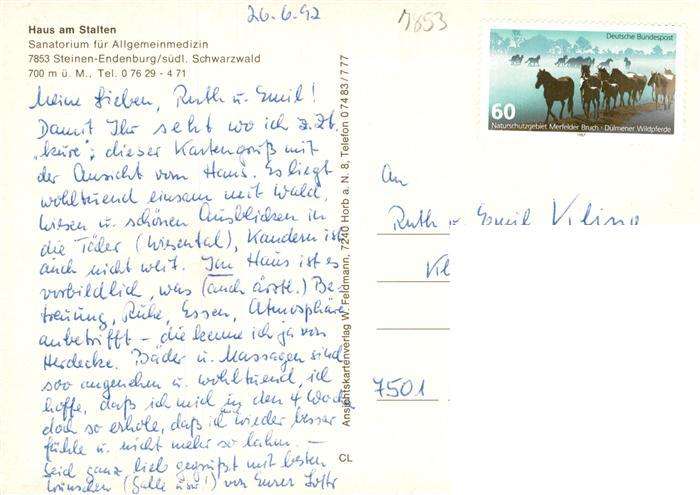 26.6.92
7853
Haus am Stalten
Sanatorium für Allgemeinmedizin
7853 Steinen-Endenburg/südl. Schwarzwald
700 m ü. M., Tel. 0 76 29 - 4 71
Meine Lieben, Ruth u. Emil!
Damit Ihr seht wo ich z. Zt.
"kure", dieser Kartengruß mit
der Ansicht vom Haus. Es liegt
wohltuend einsam mit Wald,
Wiesen u. schönen Ausblicken in
die Täler (Wiesental), Kandern ist
auch nicht weit. Im Haus ist es
vorbildlich, was (auch ärztl.) Be-
treuung, Ruhe, Essen, Atmosphäre
anbetrifft - die kenne ich ja von
Herdecke. Bäder u. Massagen sind
soo angenehm u. wohltuend, ich
hoffe, daß ich mich in den 4 Woch
doch so erhole, daß ich wieder besser
fühle u. nicht mehr so lahm. -
Seid ganz lieb gegrüßt mit besten
Wünschen (Galle usw!) von Eurer
Ansichtskartenverlag W. Feldmann, 7240 Horb a. N. 8, Telefon 0 74 83/7 77
CL
Deutsche Bundespost
60
Naturschutzgebiet Merfelder Bruch · Dülmener Wildpferde
1987
An
Ruth u. Emil
7501